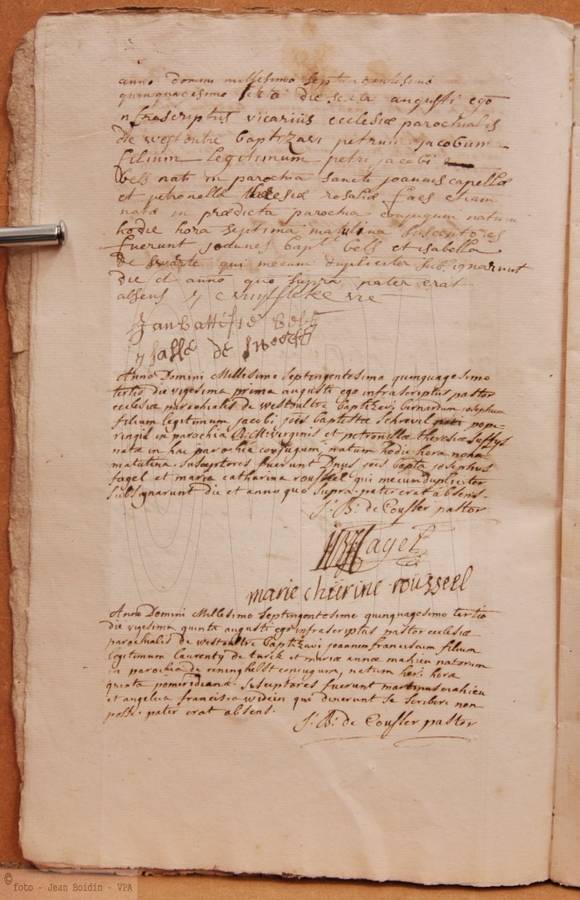 anno domini millesimo septincentesimo
quinquagesimo tertio die sexta augusti ego
nfrascriptus vicarius ecclesiæ parochialis
de westoutre baptizavi petrum jacobum
filium legitimum petri jacobi
bels nati in parochia sancti joannis capella
et petronella theresiæ rosaliæ faes etiam
nata in prædicta parochia conjugum natum
hodie hora septima matutina susceptores
fuerunt joannes bapt bels et isabella
de swarte qui mecum dupliciter subsignarunt
die et anno quo supra pater erat
absens
Jan battiste bels
de swarte
Anno Domini Millesimo septingentesimo quinquagesimo
tertio die vigesima prima augusti ego infrascriptus pastor
ecclesiæ parochialis de westoultre baptizavi bernardum josephum
filium legitimum jacobi jois baptistæ Schrevel nati pope-
ringis in parochia B.M. virginis et petronellæ theresiæ
nata in hac parochia conjugum, natum hodie hora nona
matutina. susceptores fuerunt Dnus jois bapta josephus
fagel et maria catharina roussel qui mecum dupliciter
subsignarunt die et anno quo supra. pater erat absens.
J: B: de Coussler pastor
fagel
marie rousseel
Anno Domini Millesimo septingentesimo quinquagesimo tertio
die vigesima quinta augusti ego infrascriptus pastor ecclesiæ
parochialis de westoultre baptizavi joannem franciscum filium
legitimum laurenty de turck et mariæ annæ mahieu natorum
in parochia de reninghelst conjugum, natum heri hora
quarta pomeridiana. susceptores fuerunt martinus mahieu
et angelina francisca qui dixerunt se scribere non
posse. pater erat absens.
J: B: de Coussler pastor
© foto - Jean Boidin - VPA